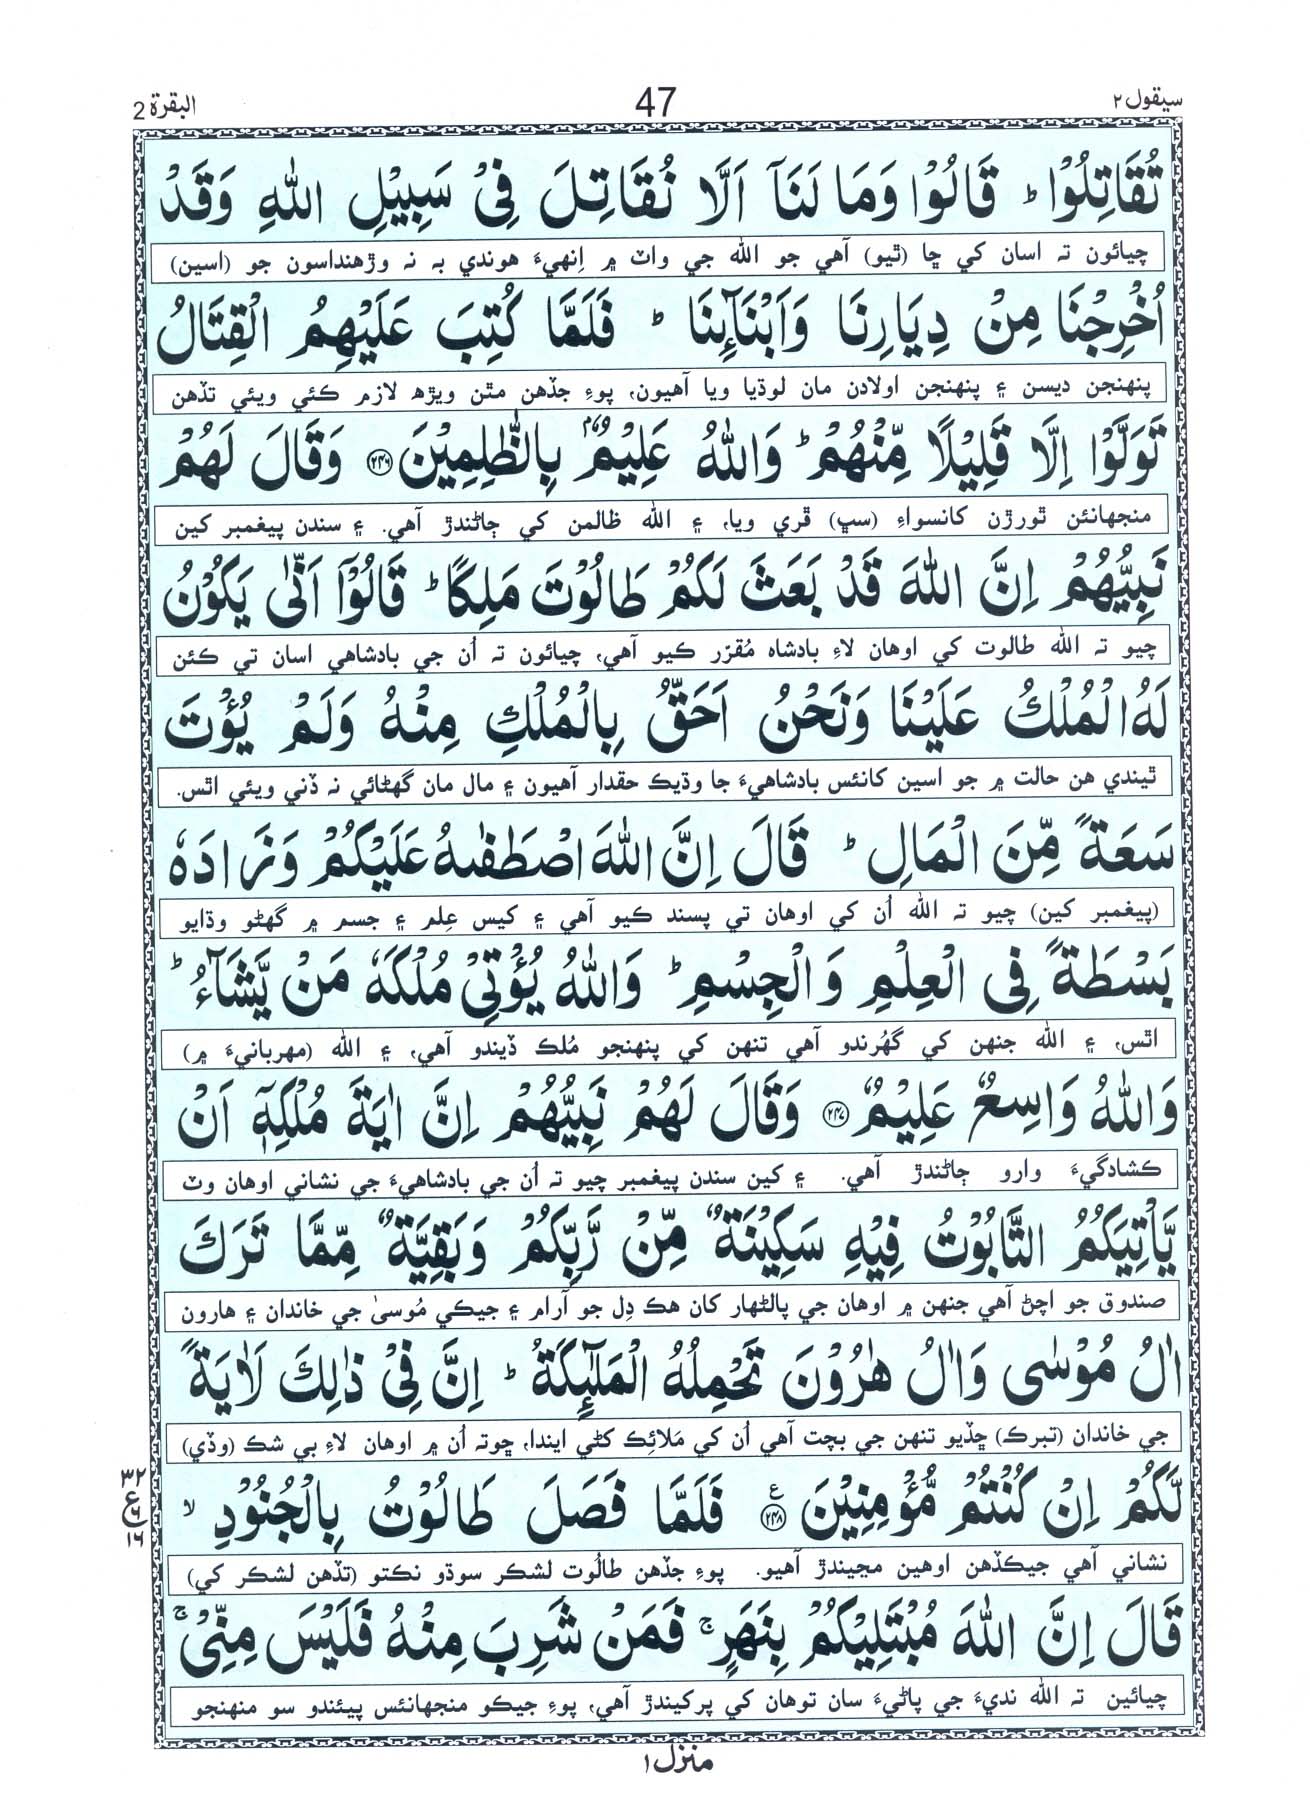 سيقول ٢
47
البقرة 2
تُقَاتِلُوْا ؕ قَالُوْا وَمَا لَنَاۤ اَلَّا نُقَاتِلَ فِیْ سَبِیْلِ اللّٰهِ وَقَدْ
چيائون تہ اسان کي ڇا (ٿيو) آهي جو الله جي واٽ ۾ اِنهيءَ هوندي بہ نہ وڙهنداسون جو (اسين)
اُخْرِجْنَا مِنْ دِیَارِنَا وَاَبْنَآىِٕنَا ؕ فَلَمَّا كُتِبَ عَلَیْهِمُ الْقِتَالُ
پنهنجن ديسن ۽ پنهنجن اولادن مان لوڌيا ويا آهيون، پوءِ جڏهن مٿن ويڙهہ لازم ڪئي ويئي تڏهن
تَوَلَّوْا اِلَّا قَلِیْلًا مِّنْهُمْ ؕ وَاللّٰهُ عَلِیْمٌۢ بِالظّٰلِمِیْنَ ﴿۲۴۶﴾ وَقَالَ لَهُمْ
منجهانئن ٿورڙن کانسواءِ (سڀ) ڦري ويا، ۽ الله ظالمن کي ڄاڻندڙ آهي. ۽ سندن پيغمبر کين
نَبِیُّهُمْ اِنَّ اللّٰهَ قَدْ بَعَثَ لَكُمْ طَالُوْتَ مَلِكًا ؕ قَالُوْۤا اَنّٰی یَكُوْنُ
چيو تہ الله طالوت کي اوهان لاءِ بادشاہ مُقرّر ڪيو آهي، چيائون تہ اُن جي بادشاهي اسان تي ڪئن
لَهُ الْمُلْكُ عَلَیْنَا وَنَحْنُ اَحَقُّ بِالْمُلْكِ مِنْهُ وَلَمْ یُؤْتَ
ٿيندي هن حالت ۾ جو اسين کانئس بادشاهيءَ جا وڌيڪ حقدار آهيون ۽ مال مان گهڻائي نہ ڏني ويئي اٿس.
سَعَةً مِّنَ الْمَالِ ؕ قَالَ اِنَّ اللّٰهَ اصْطَفٰىهُ عَلَیْكُمْ وَزَادَهٗ
(پيغمبر کين) چيو تہ الله اُن کي اوهان تي پسند ڪيو آهي ۽ کيس عِلم ۽ جسم ۾ گهڻو وڌايو
بَسْطَةً فِی الْعِلْمِ وَالْجِسْمِ ؕ وَاللّٰهُ یُؤْتِیْ مُلْكَهٗ مَنْ یَّشَآءُ ؕ
اٿس، ۽ الله جنهن کي گهُرندو آهي تنهن کي پنهنجو مُلڪ ڏيندو آهي، ۽ الله (مهربانيءَ ۾)
وَاللّٰهُ وَاسِعٌ عَلِیْمٌ ﴿۲۴۷﴾ وَقَالَ لَهُمْ نَبِیُّهُمْ اِنَّ اٰیَةَ مُلْكِهٖۤ اَنْ
ڪشادگيءَ وارو ڄاڻندڙ آهي. ۽ کين سندن پيغمبر چيو تہ اُن جي بادشاهيءَ جي نشاني اوهان وٽ
یَّاْتِیَكُمُ التَّابُوْتُ فِیْهِ سَكِیْنَةٌ مِّنْ رَّبِّكُمْ وَبَقِیَّةٌ مِّمَّا تَرَكَ
صندوق جو اچڻ آهي جنهن ۾ اوهان جي پالڻهار کان هڪ دِل جو آرام ۽ جيڪي مُوسىٰ جي خاندان ۽ هارون
اٰلُ مُوْسٰی وَاٰلُ هٰرُوْنَ تَحْمِلُهُ الْمَلٰٓىِٕكَةُ ؕ اِنَّ فِیْ ذٰلِكَ لَاٰیَةً
جي خاندان (تبرڪ) ڇڏيو تنهن جي بچت آهي اُن کي مَلائِڪ کڻي ايندا، ڇوتہ اُن ۾ اوهان لاءِ بي شڪ (وڏي)
لَّكُمْ اِنْ كُنْتُمْ مُّؤْمِنِیْنَ ﴿۲۴۸﴾ ع فَلَمَّا فَصَلَ طَالُوْتُ بِالْجُنُوْدِ ۙ
٣٢
ع
١٦
نشاني آهي جيڪڏهن اوهين مڃيندڙ آهيو. پوءِ جڏهن طالُوت لشڪر سوڌو نڪتو (تڏهن لشڪر کي)
قَالَ اِنَّ اللّٰهَ مُبْتَلِیْكُمْ بِنَهَرٍ ۚ فَمَنْ شَرِبَ مِنْهُ فَلَیْسَ مِنِّیْ ۚ
چيائين تہ الله نديءَ جي پاڻيءَ سان توهان کي پرکيندڙ آهي، پوءِ جيڪو منجهانئس پيئندو سو منهنجو
منزل ۱